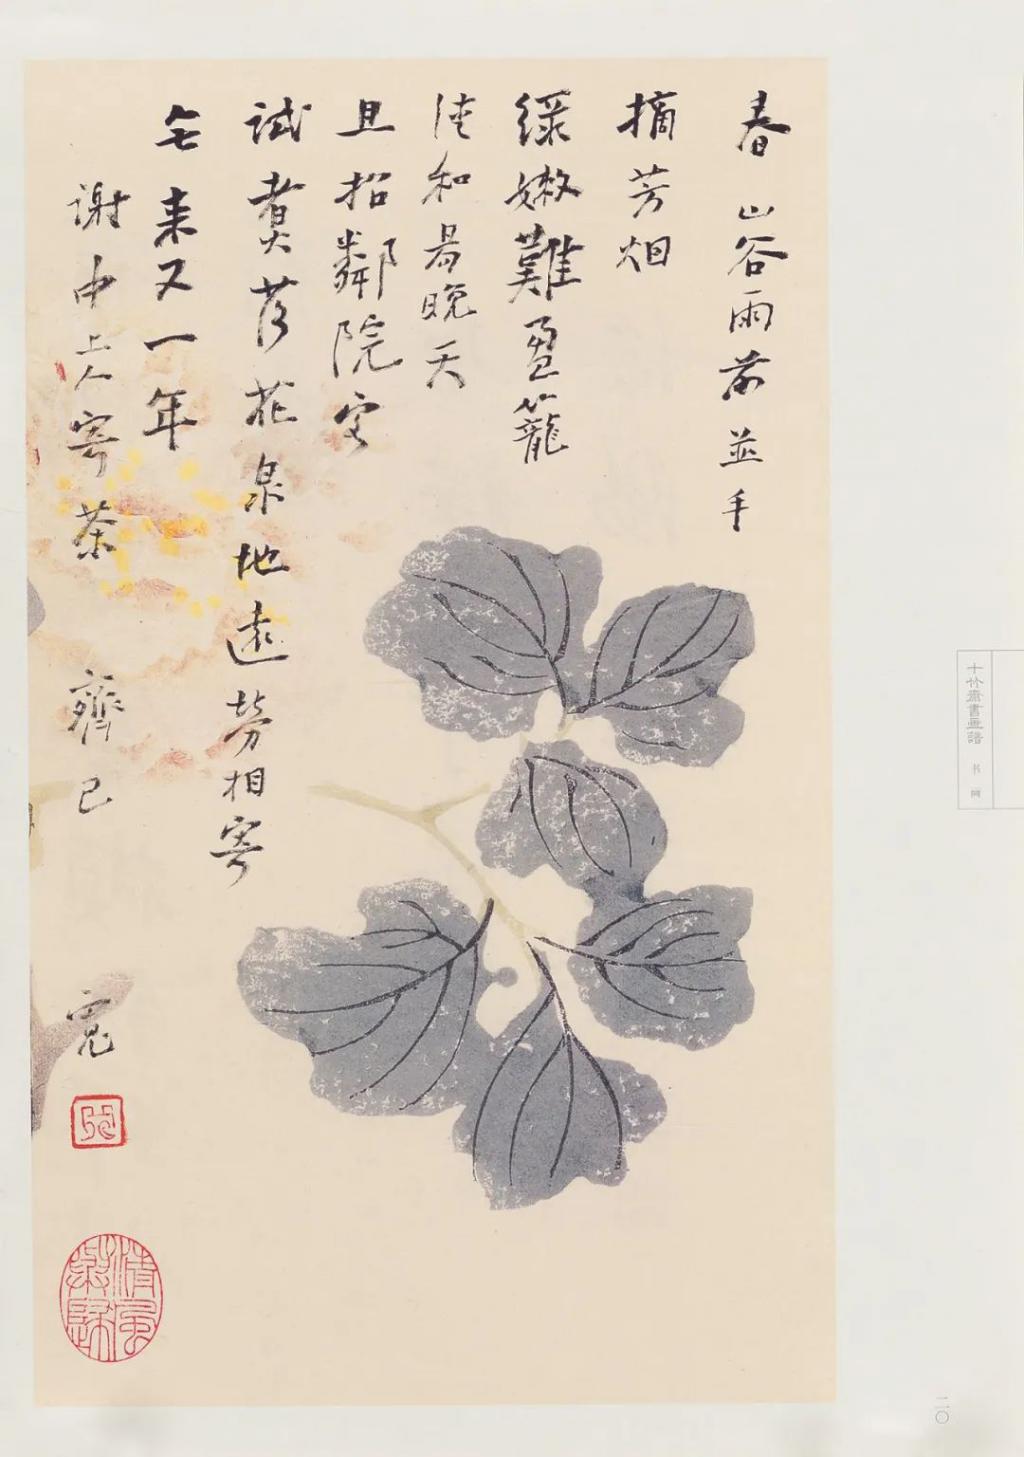 春山谷雨前並手
摘芳烟
緑嫩難盈籠
清和易晚天
且招鄰院客
試煮落花泉地遠勞相寄
無来又一年
謝中上人寄茶 齊己 寬
清風
十竹齋書画譜 书画
二〇